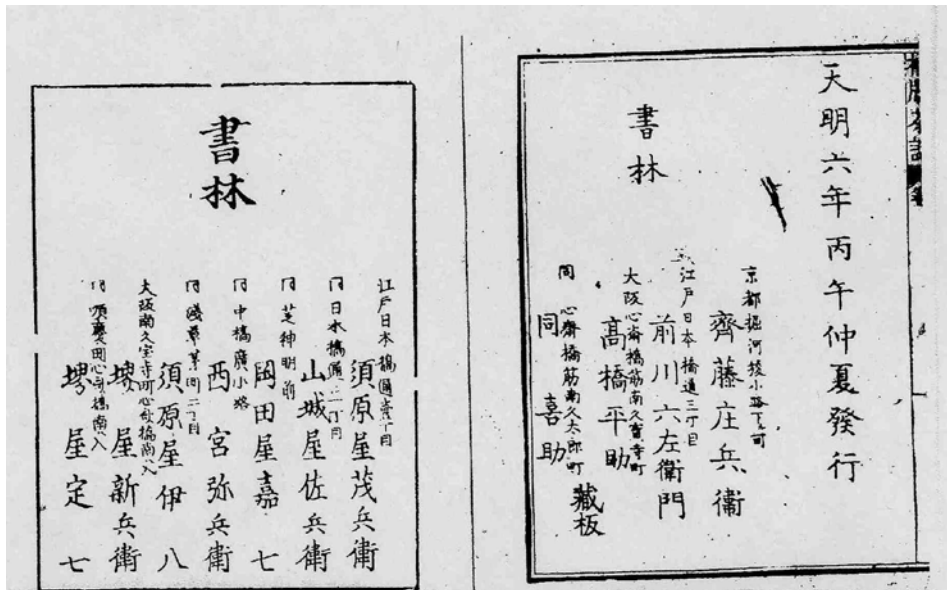 天明六年丙午仲夏發行
書林
京都堀河綾小路下ル町
齊藤庄兵衞
江戸日本橋通三丁目
前川六左衞門
大阪心斎橋筋南久寶寺町
高橋平助
同 心齋橋筋南久太郎町
同 喜助
藏板
書林
江戸日本橋通壹丁目
須原屋茂兵衞
同日本橋通二丁目
山城屋佐兵衞
同芝神明前
岡田屋嘉七
同中橋廣小路
西宮弥兵衞
同淺草茅町二丁目
須原屋伊八
大阪南久宝寺町心斎橋南入
堺屋新兵衞
同順慶町心斎橋南入
堺屋定七